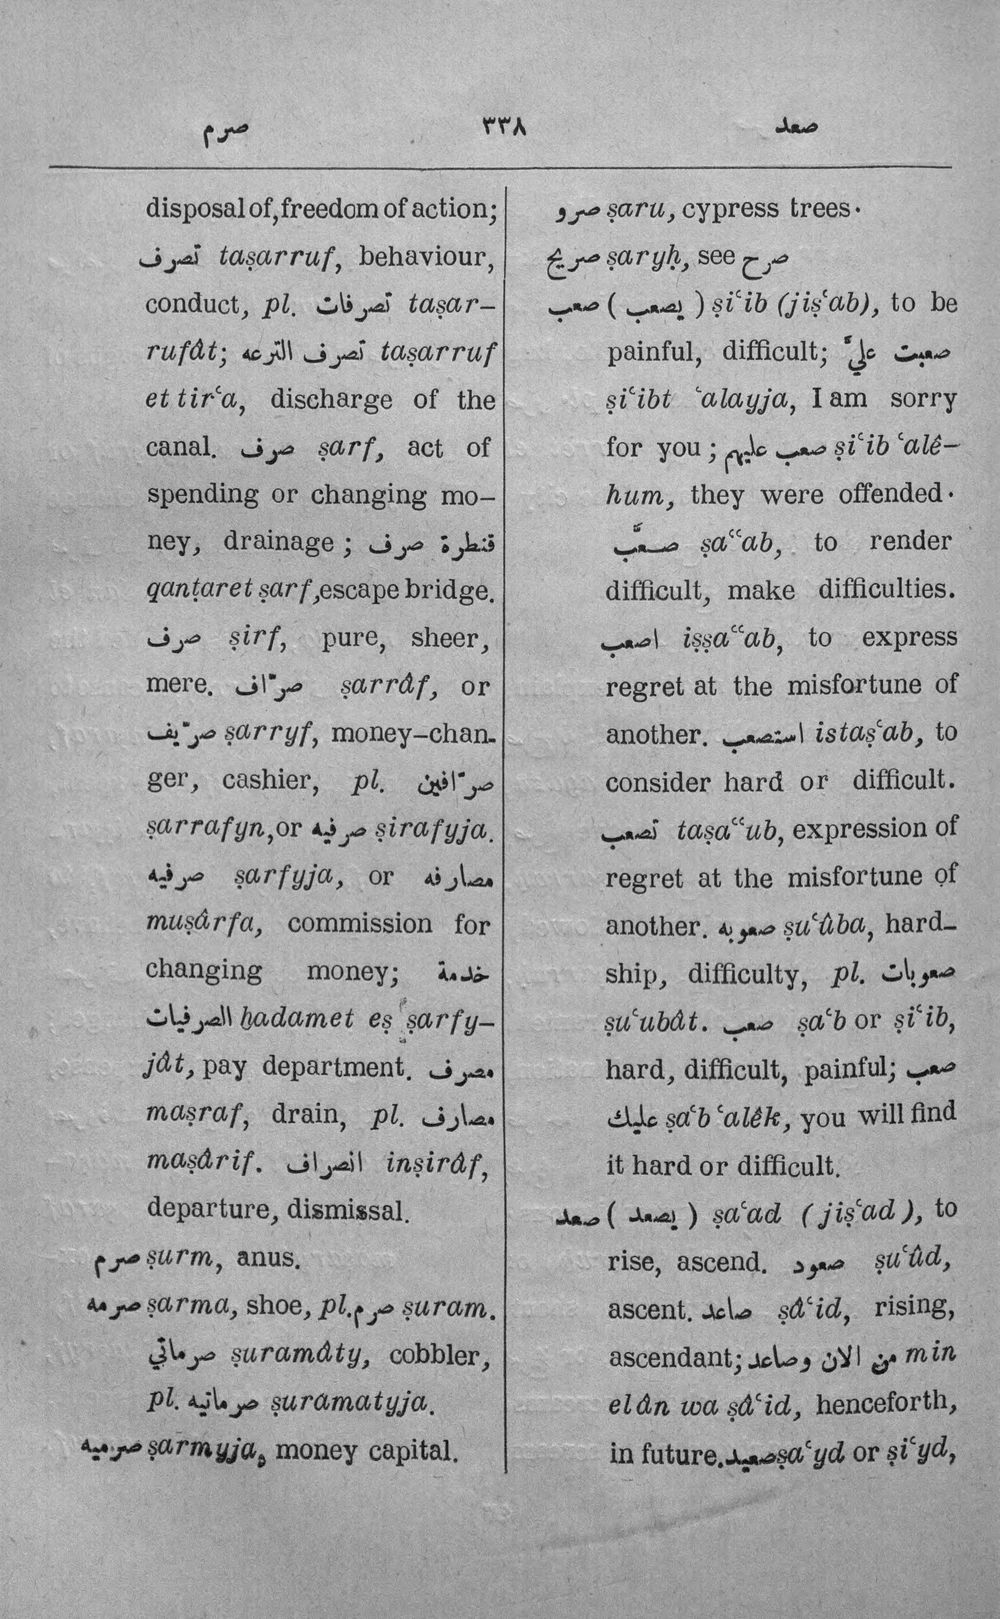 صرم ٣٣٨ صعد
disposal of, freedom of action;
تصرف taṣarruf, behaviour,
conduct, pl. تصرفات taṣar-
rufât; تصرف الترعه taṣarruf
et tirʿa, discharge of the
canal. صرف ṣarf, act of
spending or changing mo-
ney, drainage; قنطرة صرف
qanṭaret ṣarf, escape bridge.
صرف ṣirf, pure, sheer,
mere. صرّاف ṣarrâf, or
صرّيف ṣarryf, money-chan-
ger, cashier, pl. صرّافين
ṣarrafyn, or صرفيه ṣirafyja.
صرفيه ṣarfyja, or مصارفه
muṣârfa, commission for
changing money; خدمة
الصرفيات ḫadamet eṣ ṣarfy-
jât, pay department. مصرف
maṣraf, drain, pl. مصارف
maṣârif. انصراف inṣirâf,
departure, dismissal.
صرم ṣurm, anus.
صرمه ṣarma, shoe, pl. صرم ṣuram.
صرماتي ṣuramâty, cobbler,
pl. صرماتيه ṣuramatyja.
صرميه ṣarmyja, money capital.
صرو ṣaru, cypress trees.
صريح ṣaryḥ, see صرح
صعب (يصعب) ṣiʿib (jiṣʿab), to be
painful, difficult; صعبت عليَّ
ṣiʿibt ʿalayja, I am sorry
for you; صعب عليهم ṣiʿib ʿalê-
hum, they were offended.
صعَّب ṣaʿʿab, to render
difficult, make difficulties.
اصعب iṣṣaʿʿab, to express
regret at the misfortune of
another. استصعب istaṣʿab, to
consider hard or difficult.
تصعب taṣaʿʿub, expression of
regret at the misfortune of
another. صعوبه ṣuʿûba, hard-
ship, difficulty, pl. صعوبات
ṣuʿubât. صعب ṣaʿb or ṣiʿib,
hard, difficult, painful; صعب
عليك ṣaʿb ʿalêk, you will find
it hard or difficult.
صعد (يصعد) ṣaʿad (jiṣʿad), to
rise, ascend. صعود ṣuʿûd,
ascent. صاعد ṣâʿid, rising,
ascendant; من الان وصاعد min
elân wa ṣâʿid, henceforth,
in future. صعيد ṣaʿyd or ṣiʿyd,